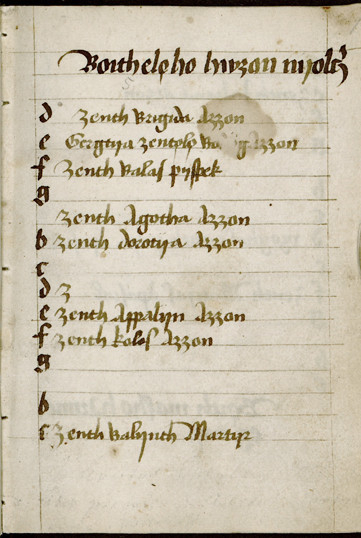 Boıthelelho huzon nıjolcz
d zenth Brigida Azzon
e Gergtija zentelp Bo g Azzon
f zenth Balas pijspek
g
zenth Agotha Azzon
b zenth dorotija Azzon
c
d z
e zenth Appalijn Azzon
f zenth kolos Azzon
g
b
c zenth Balijnth Martijr